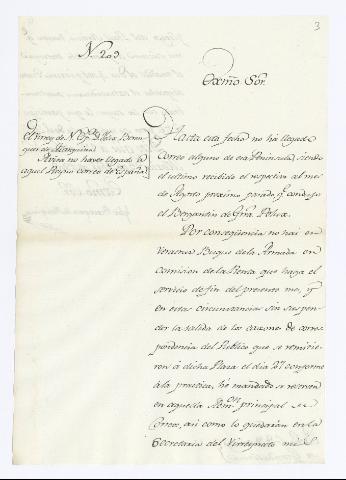 3
Exmo. Sor.
El Virrey de N.
Avisa no haver llegado à
aquel Reyno correo de España
Hasta esta fecha no ha llegado
Correo alguno de esa Peninsula, siendo
el ultimo recibido el respectivo al mes
de Agosto proximo pasado, q. conduxo
el Bergantin de
Por conseqüencia no hai en
Veracruz Buque de la Armada en
comision de la Renta que haga el
servicio de fin del presente mes, y
en estas circunstancias sin suspen-
der la salida de los caxones de corres
pondencia del Publico que se remitie-
ron à dicha Plaza el dia 27 conforme
à la practica, he mandado se reserven
en aquella Admon. principal de
Correos, asi como lo quedarán en la
Secretaria del Virreynato mis